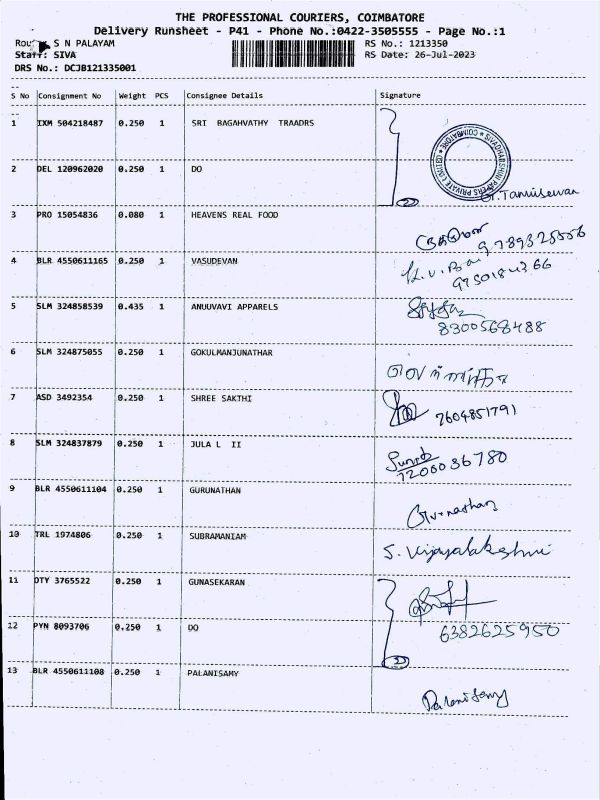 THE PROFESSIONAL COURIERS, COIMBATORE
Delivery Runsheet - P41 - Phone No.:0422-3505555 - Page No.:1
S N PALAYAM RS No.: 1213350
Staff: SIVA RS Date: 26-Jul-2023
DRS No.: DCJB121335001
S No Consignment No Weight PCS Consignee Details Signature
1 IXM 504218487 0.250 1 SRI BAGAHVATHY TRAADRS
SIVADHARSHINI PAPERS PRIVATE LIMITED ★ COIMBATORE ★
2 DEL 120962020 0.250 1 DO
2
3 PRO 15054836 0.080 1 HEAVENS REAL FOOD
9789325556
4 BLR 4550611165 0.250 1 VASUDEVAN
5 SLM 324858539 0.435 1 ANUUVAVI APPARELS
8300568488
6 SLM 324875055 0.250 1 GOKULMANJUNATHAR
7 ASD 3492354 0.250 1 SHREE SAKTHI
7604851791
8 SLM 324837879 0.250 1 JULA L II
7200036780
9 BLR 4550611104 0.250 1 GURUNATHAN
10 TRL 1974806 0.250 1 SUBRAMANIAM
S. Vijayalakshmi
11 OTY 3765522 0.250 1 GUNASEKARAN
12 PYN 8093706 0.250 1 DO
6382625950
2
13 BLR 4550611108 0.250 1 PALANISAMY
Palanisamy